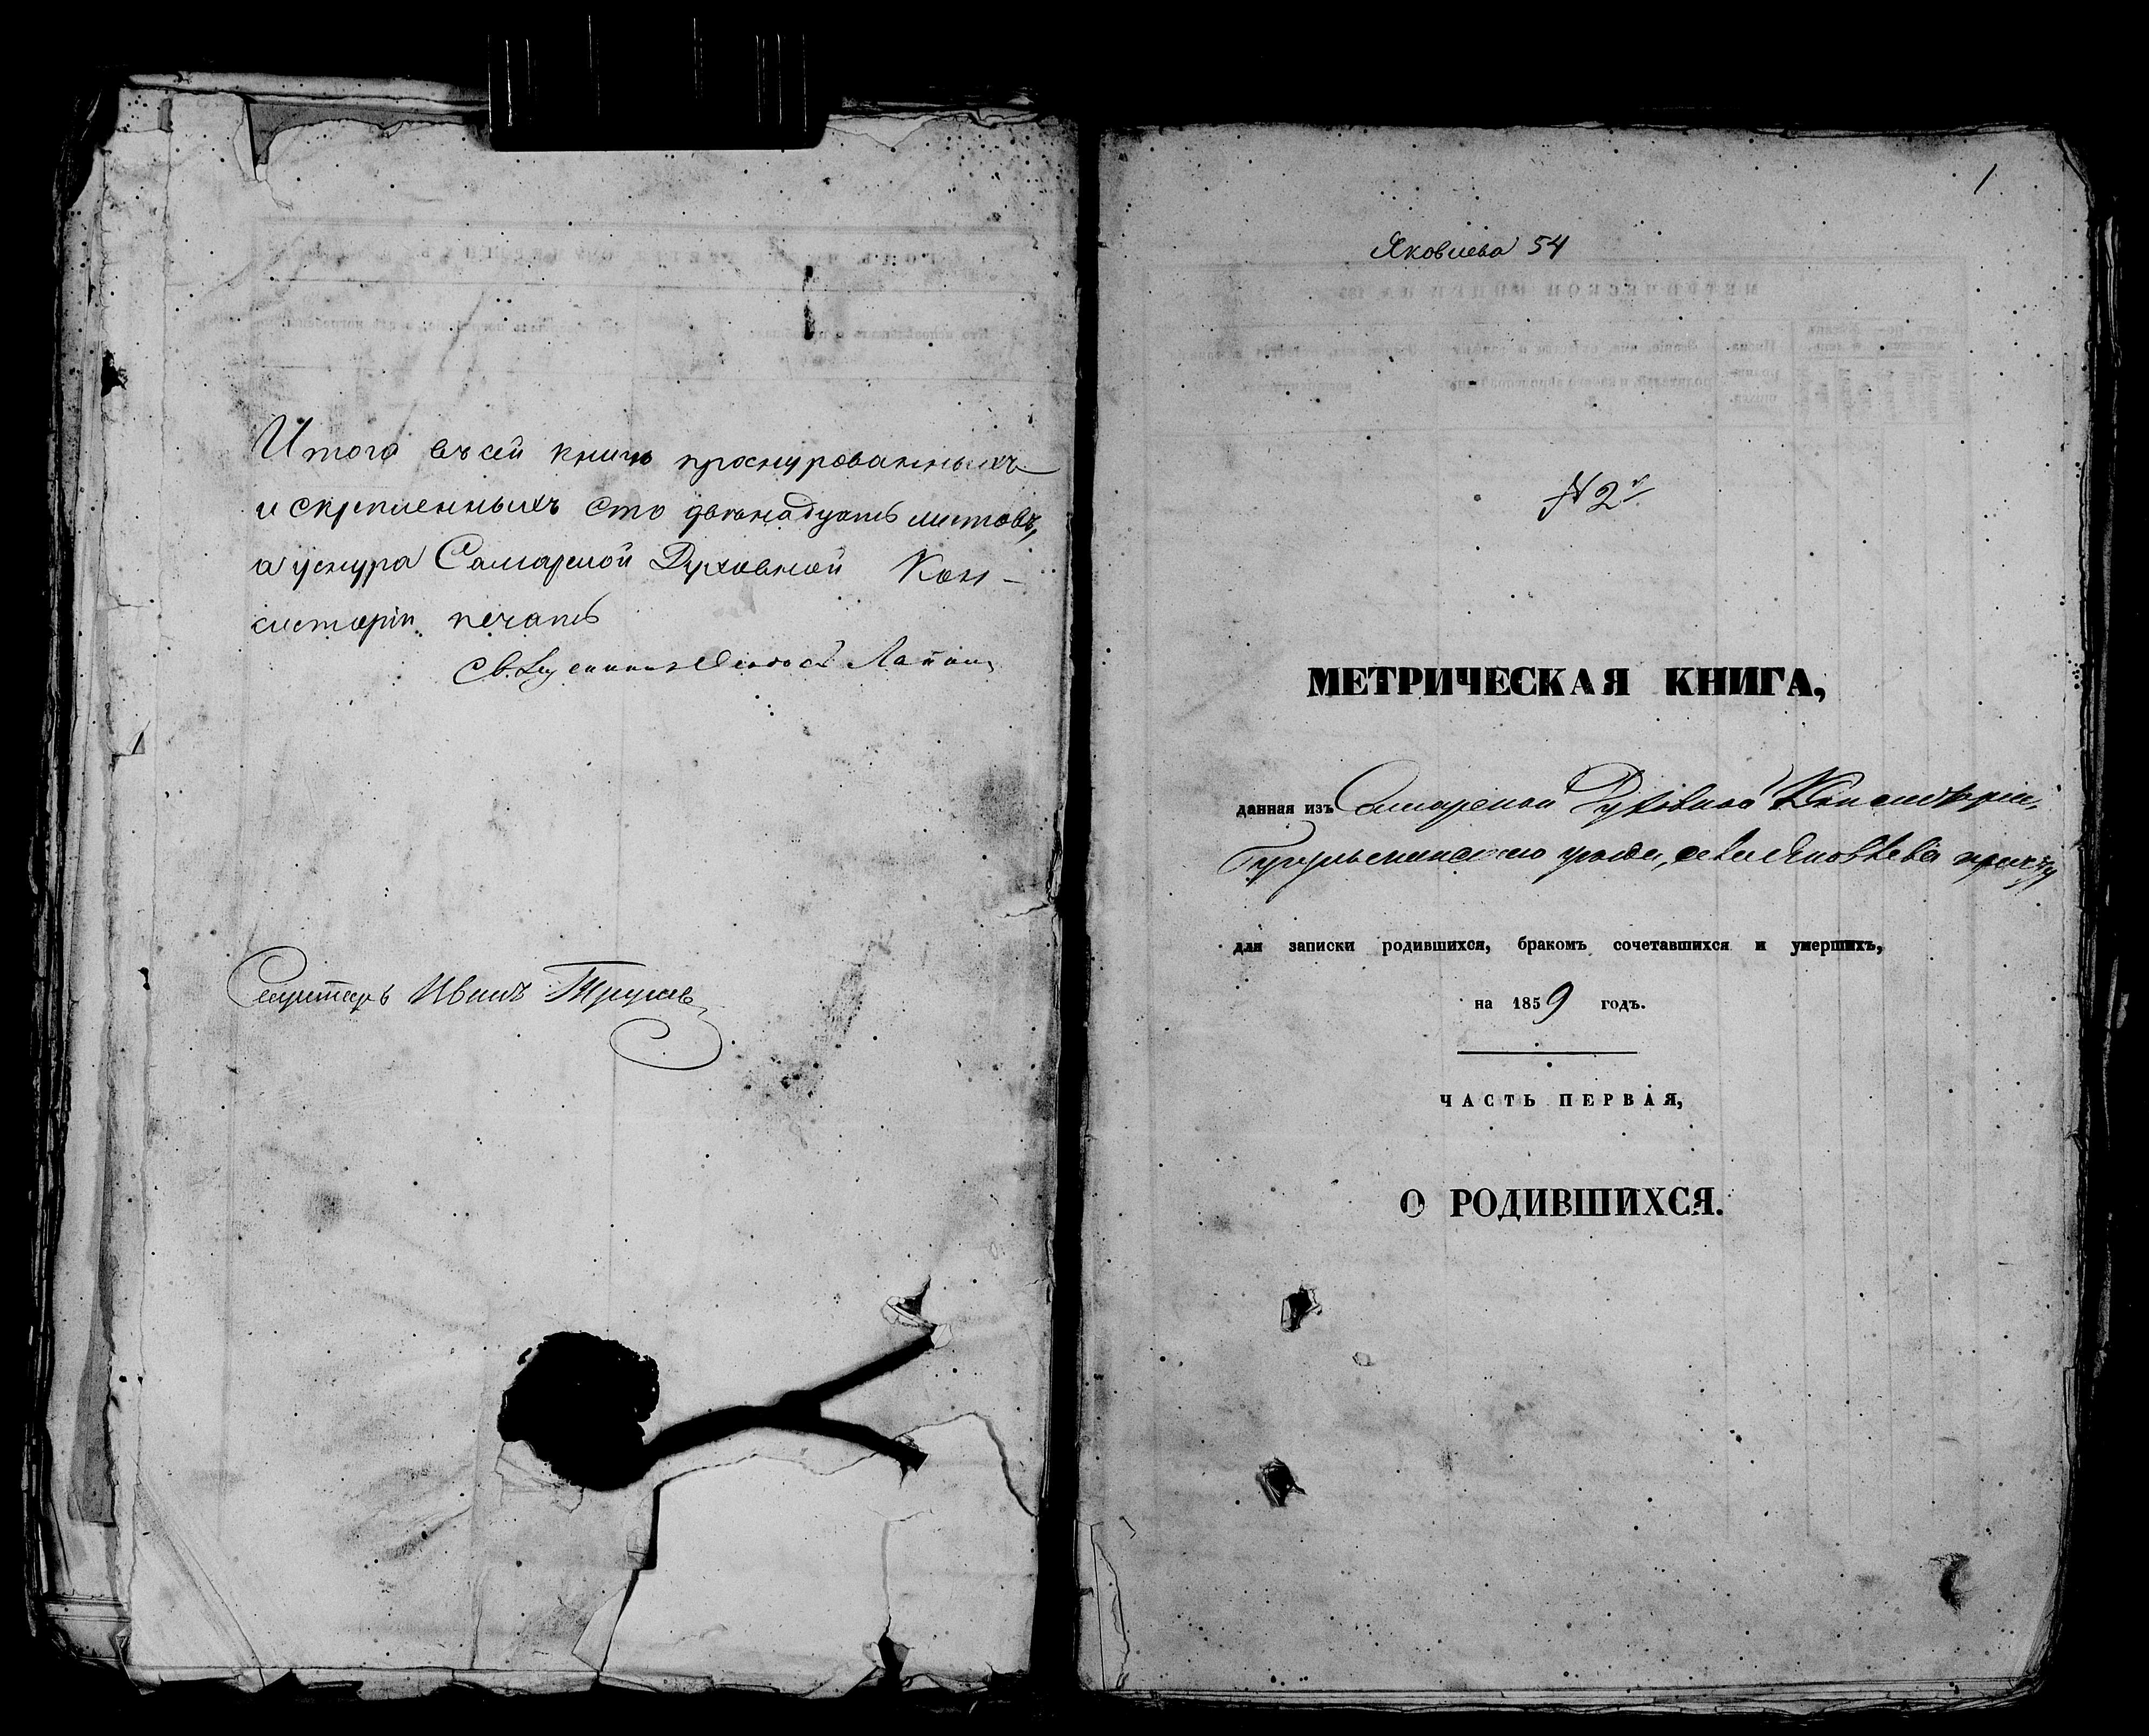 Итого въ сей книге прошнурованныхъ
и скрепленныхъ сто двенадцать листовъ,
а у шнура Самарской Духовной Кон-
систоріи печать
Секретарь Иванъ
1
Яковлева 54
№ 2й
МЕТРИЧЕСКАЯ КНИГА,
данная изъ Самарской Духовной Консисторіи,
Бугульминскаго уезда, села Яковлева причту
для записки родившихся, бракомъ сочетавшихся и умершихъ,
на 1859 годъ.
ЧАСТЬ ПЕРВАЯ,
О РОДИВШИХСЯ.